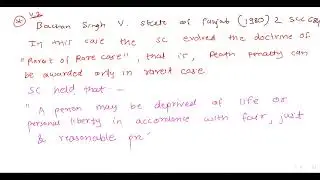 V.2
Bachan Singh V. State of Punjab (1980) 2 SCC 684
In this case the SC evolved the doctrine of
"Rarest of Rare case", that is, Death penalty can
be awarded only in rarest case.
SC held that —
"A person may be deprived of life or
personal liberty in accordance with fair, just
& reasonable pr